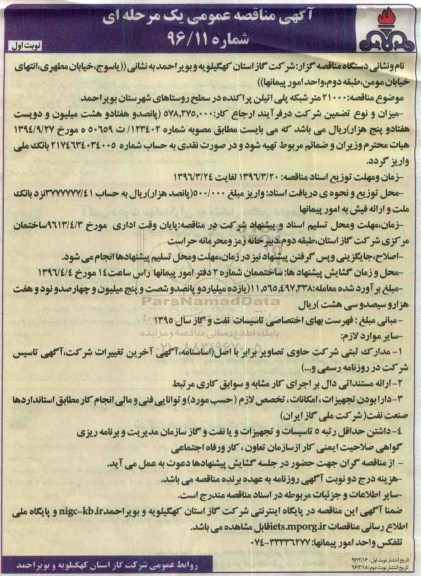 آگهی مناقصه عمومی یک مرحله ای
شماره ۹۶/۱۱
نوبت اول
نام ونشانی دستگاه مناقصه گزار: شرکت گاز استان کهگیلویه و بویراحمد به نشانی ((یاسوج،خیابان مطهری،انتهای
خیابان مومن،طبقه دوم،واحد امور پیمانها))
موضوع مناقصه:۲۱۰۰۰ متر شبکه پلی اتیلن پراکنده در سطح روستاهای شهرستان بویراحمد
-میزان و نوع تضمین شرکت درفرآیند ارجاع کار:۵۷۸,۲۷۵,۰۰۰ (پانصدو هفتادو هشت میلیون و دویست
هفتادو پنج هزار)ریال می باشد که می بایست مطابق مصوبه شماره ۱۲۳۴۰۲/ت ۵۰۶۵۹ ه مورخ ۱۳۹۴/۹/۲۷
هیات محترم وزیران و ضمائم مربوط تهیه شود و در صورت نقدی به حساب شماره ۲۱۷۴۶۳۴۰۳۴۰۰۵ بانک ملی
واریز گردد.
-زمان ومهلت توزیع اسناد مناقصه: ۱۳۹۶/۳/۲۰ لغایت ۱۳۹۶/۳/۲۴
-محل توزیع و نحوه ی دریافت اسناد: واریز مبلغ ۵۰۰/۰۰۰(پانصد هزار)ریال به حساب ۳۷۷۷۷۷۷/۴۱نزد بانک
ملت و ارائه فیش به امور پیمانها
-زمان،مهلت ومحل تسلیم اسناد و پیشنهاد شرکت در مناقصه:پایان وقت اداری مورخ ۹۶۱۳/۴/۳ساختمان
مرکزی شرکت گاز استان،طبقه دوم،دبیرخانه رمز ومحرمانه حراست
-اصلاح،جایگزینی وپس گرفتن پیشنهاد نیز در زمان،مهلت ومحل تسلیم پیشنهادها انجام می شود.
-محل و زمان گشایش پیشنهاد ها: ساختمان شماره ۲ دفتر امور پیمانها راس ساعت۱۴ مورخ ۱۳۹۶/۴/۴
-مبلغ برآورد شده معامله:۱۱,۵۶۵,۴۹۷,۳۳۸(یازده میلیاردو پانصدو شصت و پنج میلیون و چهارصدو نود و هفت
هزارو سیصدو سی هشت )ریال
-مبانی مبلغ : فهرست بهای اختصاصی تاسیسات نفت و گاز سال ۱۳۹۵
-سایر موارد لازم:
۱- مدارک ثبتی شرکت حاوی تصاویر برابر با اصل(اساسنامه،آگهی آخرین تغییرات شرکت،آگهی تاسیس
شرکت در روزنامه رسمی و...)
۲-ارائه مستنداتی دال بر اجرای کار مشابه و سوابق کاری مرتبط
۳-دارا بودن تجهیزات ، امکانات ، تخصص لازم ( حسب مورد) و توانایی فنی و مالی انجام کار مطابق استانداردها
صنعت نفت( شرکت ملی گاز ایران)
۴-داشتن حداقل رتبه ۵ تاسیسات و تجهیزات و یا نفت و گاز سازمان مدیریت و برنامه ریزی
گواهی صلاحیت ایمنی کار ازسازمان تعاون ، کار ورفاه اجتماعی
- از مناقصه گران جهت حضور در جلسه گشایش پیشنهادها دعوت به عمل می آید.
-هزینه درج دو نوبت آگهی روزنامه به عهده برنده مناقصه می باشد.
-سایر اطلاعات و جزئیات مربوطه در اسناد مناقصه مندرج است.
ضمنا آگهی این مناقصه در پایگاه اینترنتی شرکت گاز استان کهگیلویه و بویراحمدnigc-kb.ir و پایگاه ملی
اطلاع رسانی مناقصات iets.mporg.irقابل مشاهده می باشد.
تلفکس واحد امور پیمانها: ۳۳۳۳۶۲۷۷-۰۷۴
روابط عمومی شرکت گاز استان کهگیلویه و بویراحمد
تاریخ انتشار نوبت اول : ۹۶/۳/۱۶
تاریخ انتشار نوبت دوم :۹۶/۳/۱۸
ParsNamadData